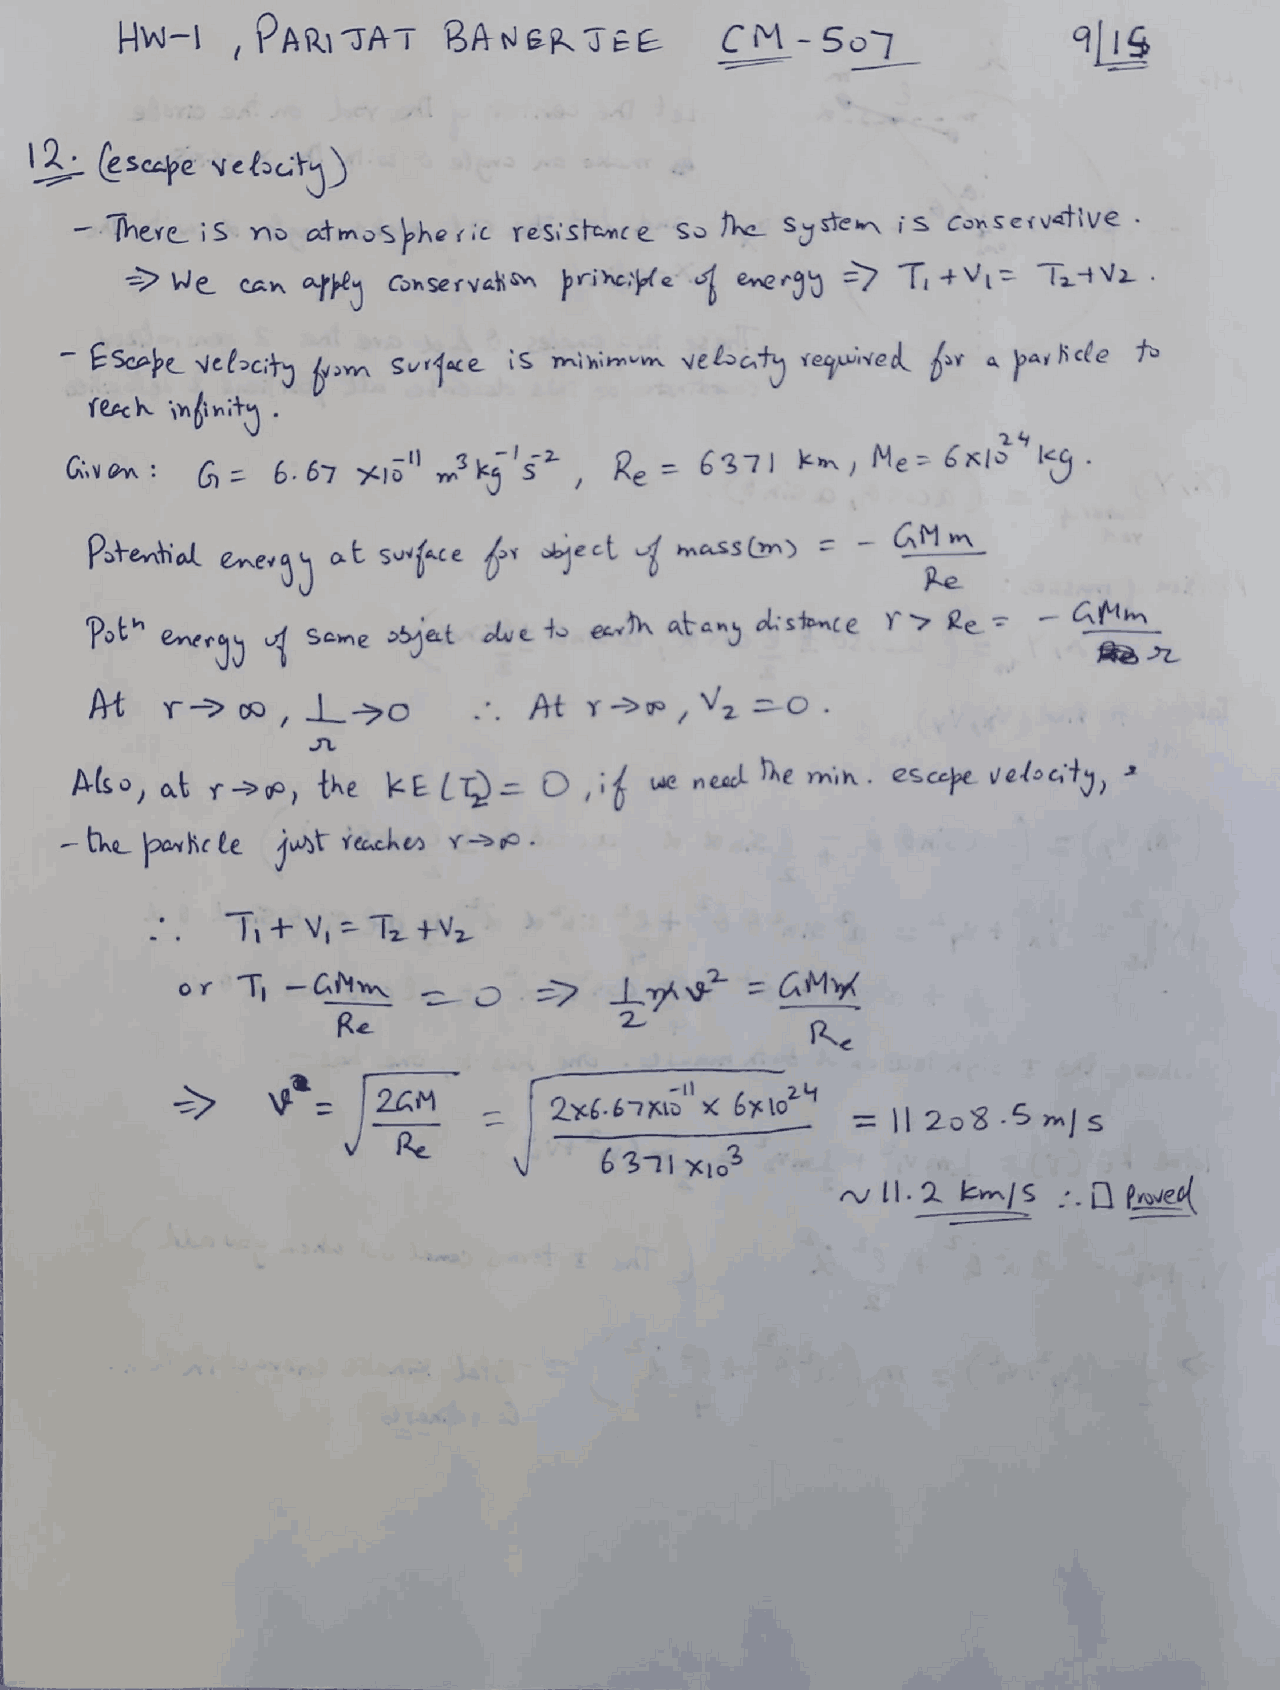 HW-1, PARIJAT BANERJEE CM-507 9/15
12. (escape velocity)
- There is no atmospheric resistance so the system is conservative.
⇒ We can apply conservation principle of energy ⇒ T₁ + V₁ = T₂ + V₂.
- Escape velocity from surface is minimum velocity required for a particle to
reach infinity.
Given: G = 6.67 ×10⁻¹¹ m³ kg⁻¹ s⁻², Re = 6371 km, Me = 6×10²⁴ kg.
Potential energy at surface for object of mass(m) = - GMm/Re
Potⁿ energy of same object due to earth at any distance r > Re = - GMm/r
At r→∞, 1/r →0 ∴ At r→∞, V₂ = 0.
Also, at r→∞, the KE (T₂) = 0, if we need the min. escape velocity,
- the particle just reaches r→∞.
∴ T₁ + V₁ = T₂ + V₂
or T₁ - GMm/Re = 0 ⇒ 1/2 mv² = GMm/Re
⇒ v = √(2GM/Re) = √(2×6.67×10⁻¹¹ × 6×10²⁴/6371×10³) = 11208.5 m/s
~ 11.2 km/s ∴ □ Proved